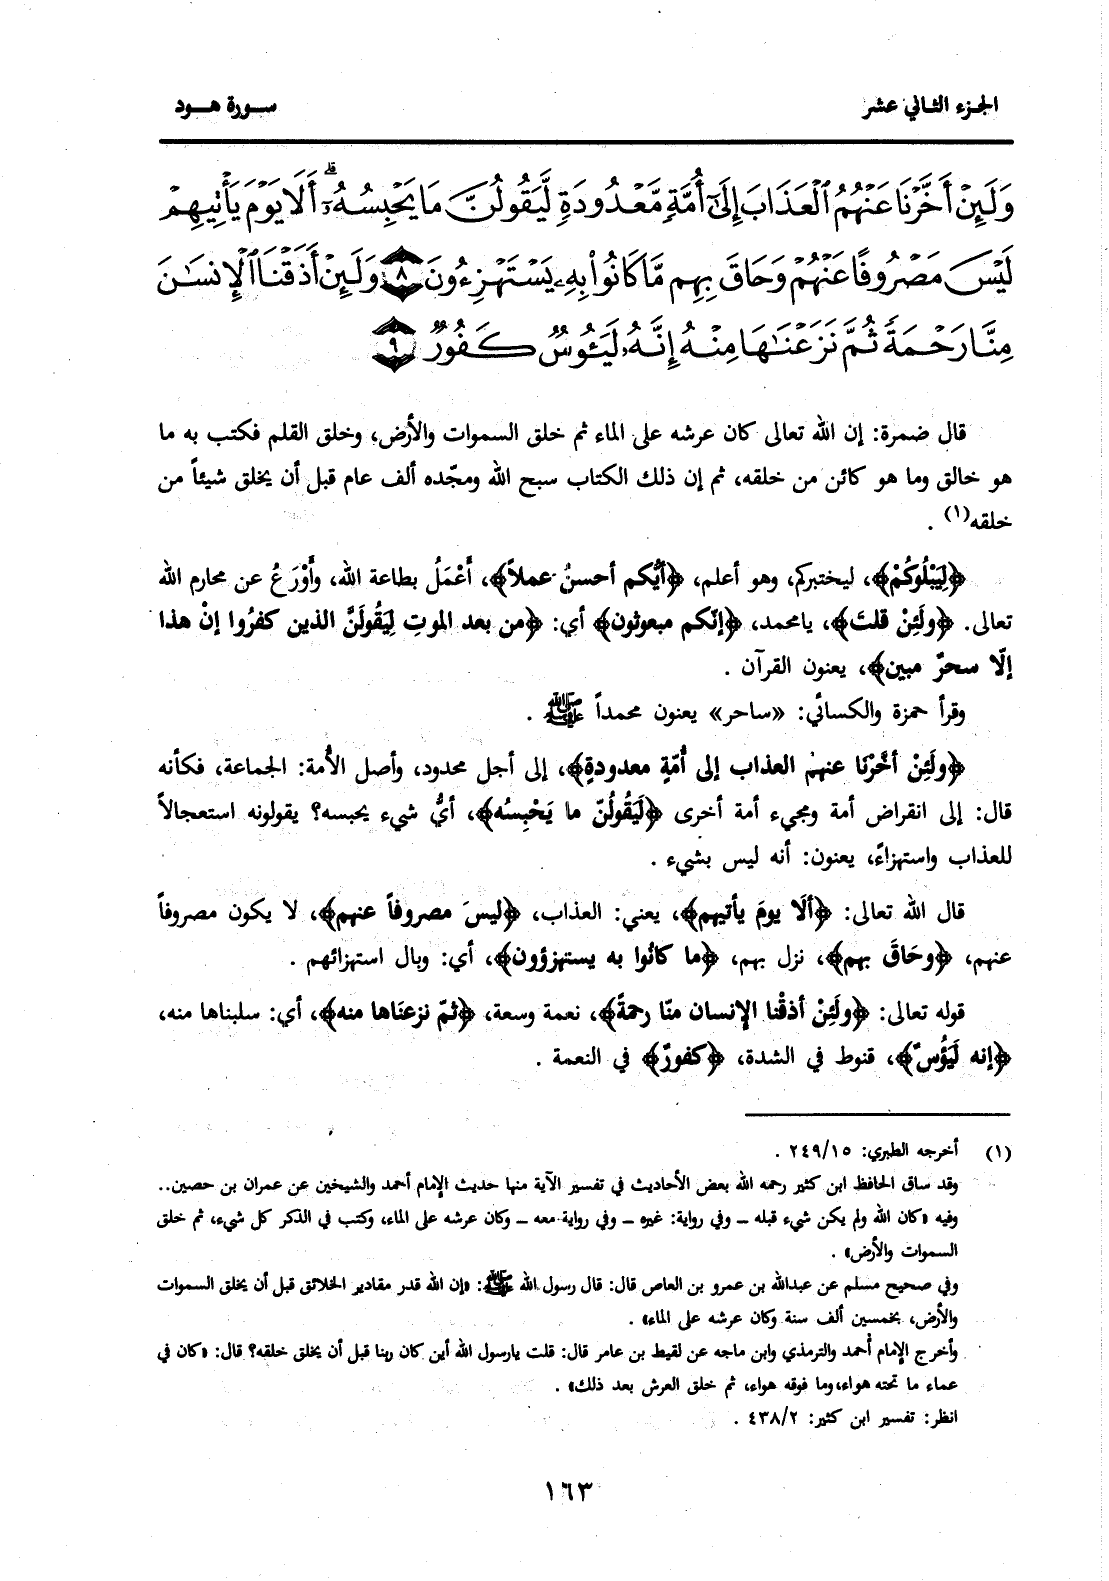 الجزء الثاني عشر
سورة هود
وَلَئِنْ أَخَّرْنَا عَنْهُمُ ٱلْعَذَابَ إِلَىٰٓ أُمَّةٍ مَّعْدُودَةٍ لَّيَقُولُنَّ مَا يَحْبِسُهُۥٓ ۗ أَلَا يَوْمَ يَأْتِيهِمْ
لَيْسَ مَصْرُوفًا عَنْهُمْ وَحَاقَ بِهِم مَّا كَانُوا۟ بِهِۦ يَسْتَهْزِءُونَ ٨ وَلَئِنْ أَذَقْنَا ٱلْإِنسَـٰنَ
مِنَّا رَحْمَةً ثُمَّ نَزَعْنَـٰهَا مِنْهُ إِنَّهُۥ لَيَـُٔوسٌ كَفُورٌ ٩
قال ضمرة: إن الله تعالى كان عرشه على الماء ثم خلق السموات والأرض، وخلق القلم فكتب به ما
هو خالق وما هو كائن من خلقه، ثم إن ذلك الكتاب سبح الله ومجّده ألف عام قبل أن يخلق شيئاً من
خلقه(١) .
﴿لِيَبْلُوَكُمْ﴾، ليختبركم، وهو أعلم، ﴿أيُّكم أحسنُ عملاً﴾، أَعْمَلُ بطاعة الله، وأَوْرَعُ عن محارم الله
تعالى. ﴿ولَئِنْ قلتَ﴾، يامحمد، ﴿إنّكم مبعوثون﴾ أي: ﴿من بعد الموتِ لِيَقُولَنَّ الذين كفرُوا إنْ هذا
إلّا سحرٌ مبين﴾، يعنون القرآن .
وقرأ حمزة والكسائي: «ساحر» يعنون محمداً ﷺ .
﴿ولَئِنْ أخّرْنَا عنهمُ العذاب إلى أُمّةٍ معدودةٍ﴾، إلى أجل محدود، وأصل الأُمة: الجماعة، فكأنه
قال: إلى انقراض أمة ومجيء أمة أخرى ﴿لَيَقُولُنّ ما يَحْبِسُه﴾، أيُّ شيء يحبسه؟ يقولونه استعجالاً
للعذاب واستهزاءً، يعنون: أنه ليس بشيء .
قال الله تعالى: ﴿ألَا يومَ يأتيهم﴾، يعني: العذاب، ﴿ليسَ مصروفاً عنهم﴾، لا يكون مصروفاً
عنهم، ﴿وحَاقَ بهم﴾، نزل بهم، ﴿ما كانُوا به يستهزؤون﴾، أي: وبال استهزائهم .
قوله تعالى: ﴿ولَئِنْ أذقْنا الإنسان منّا رحمةً﴾، نعمة وسعة، ﴿ثمّ نزعنَاها منه﴾، أي: سلبناها منه،
﴿إنه لَيَؤُسٌ﴾، قنوط في الشدة، ﴿كفورٌ﴾ في النعمة .
(١) أخرجه الطبري: ٢٤٩/١٥ .
وقد ساق الحافظ ابن كثير رحمه الله بعض الأحاديث في تفسير الآية منها حديث الإمام أحمد والشيخين عن عمران بن حصين..
وفيه «كان الله ولم يكن شيء قبله ـ وفي رواية: غيره ـ وفي رواية معه ـ وكان عرشه على الماء، وكتب في الذكر كل شيء، ثم خلق
السموات والأرض» .
وفي صحيح مسلم عن عبدالله بن عمرو بن العاص قال: قال رسول الله ﷺ: «إن الله قدر مقادير الخلائق قبل أن يخلق السموات
والأرض، بخمسين ألف سنة وكان عرشه على الماء» .
وأخرج الإمام أحمد والترمذي وابن ماجه عن لقيط بن عامر قال: قلت يارسول الله أين كان ربنا قبل أن يخلق خلقه؟ قال: «كان في
عماء ما تحته هواء، وما فوقه هواء، ثم خلق العرش بعد ذلك» .
انظر: تفسير ابن كثير: ٤٣٨/٢ .
١٦٣